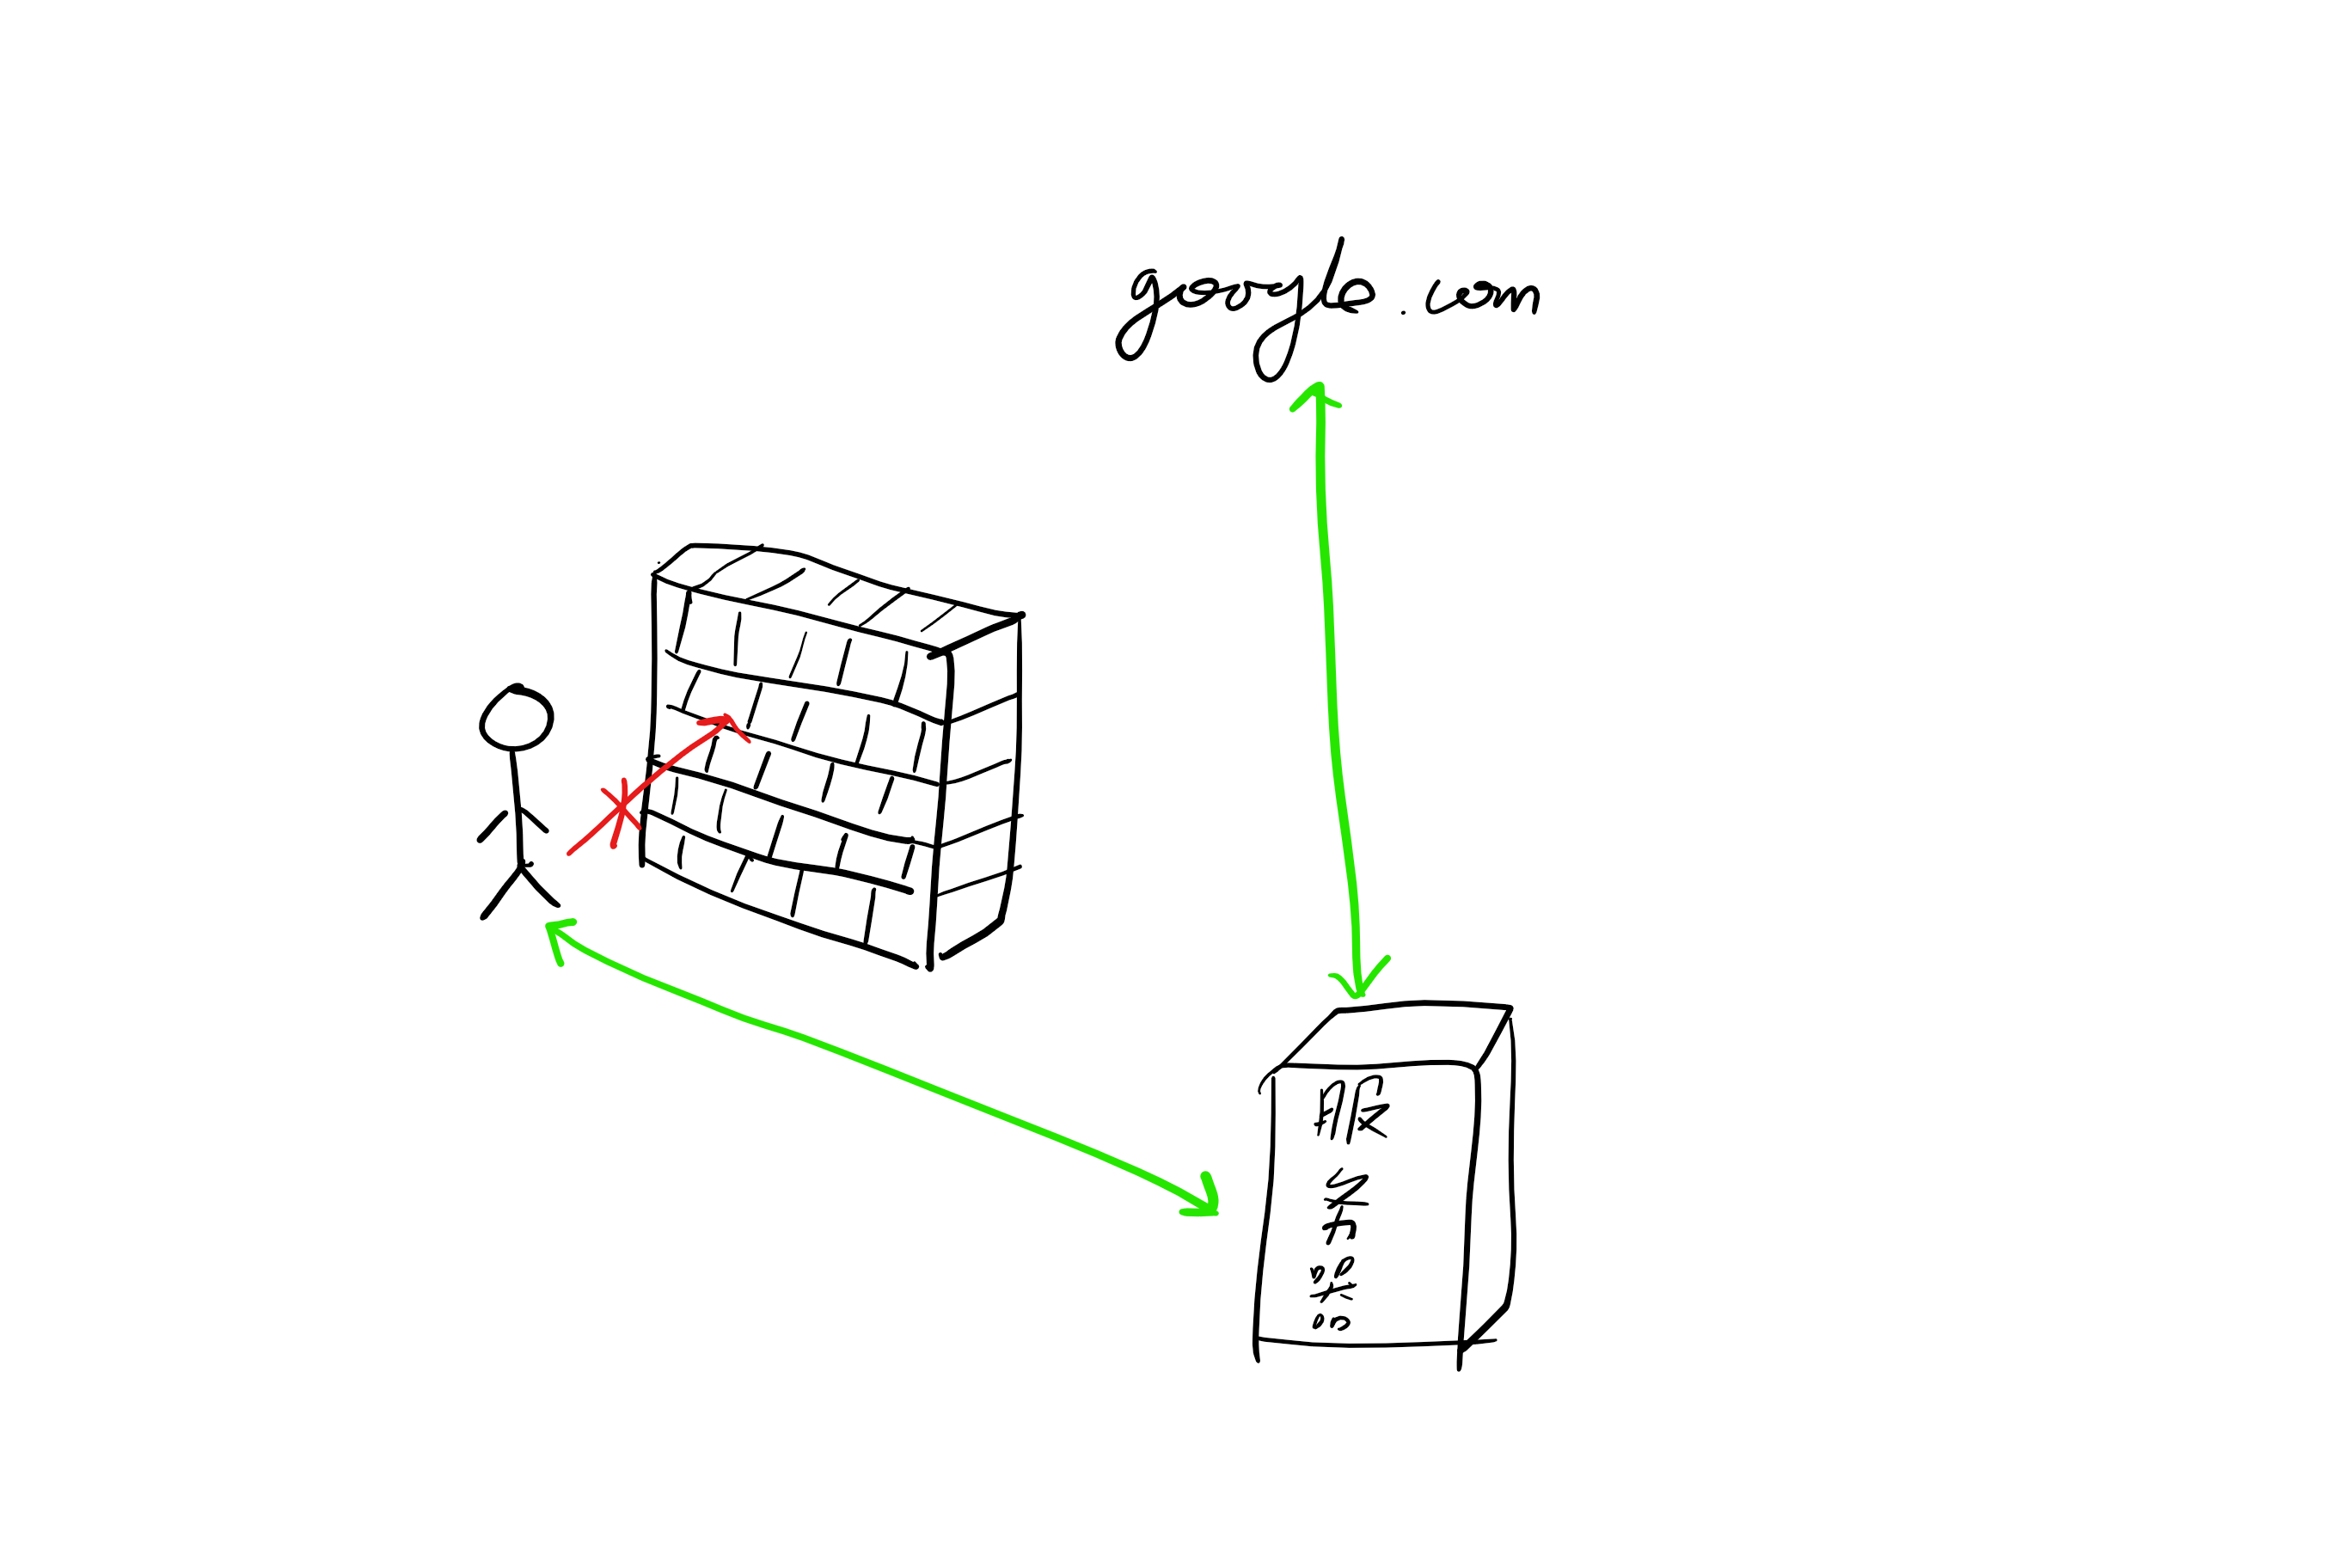 google.com
服务器